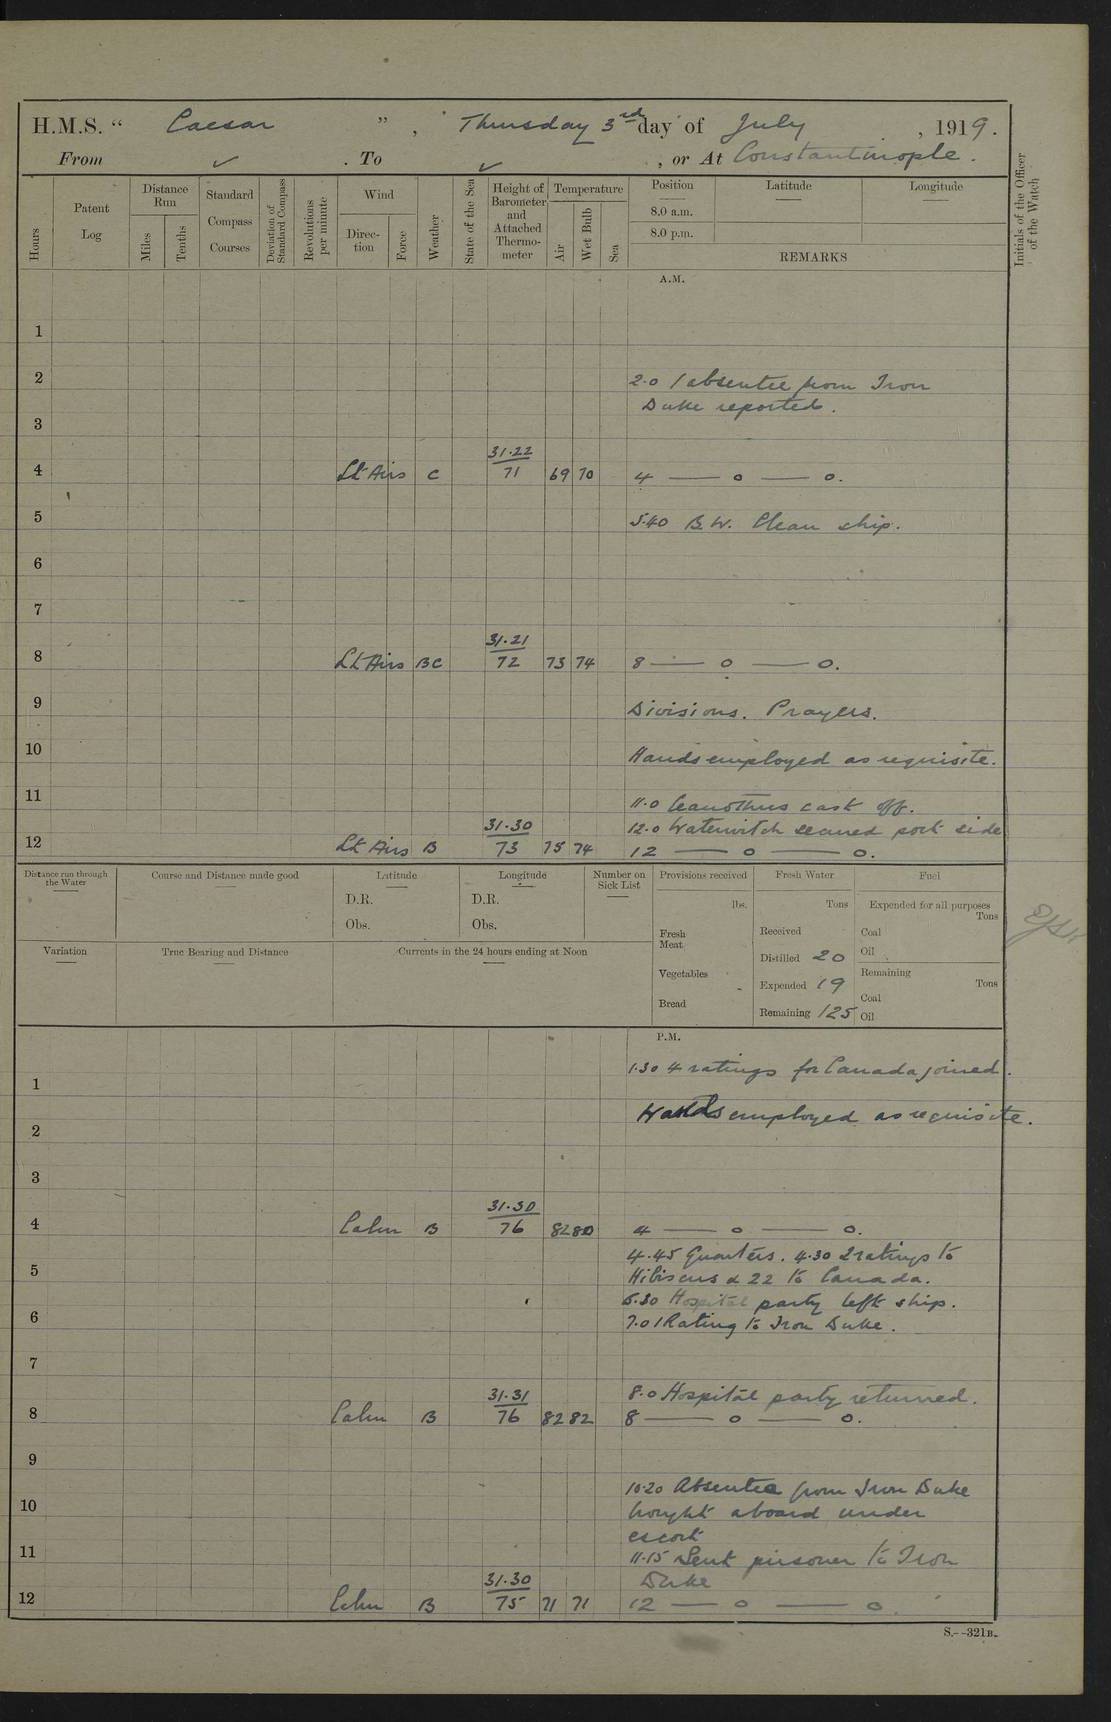 H.M.S. “ Caesar ” , Thursday 3rd day of July , 1919.
From ✓ . To ✓ , or At Constantinople.
Hours
Patent Log
Distance Run
Miles
Tenths
Standard Compass Courses
Deviation of Standard Compass
Revolutions per minute
Wind
Direc-tion
Force
Weather
State of the Sea
Height of Barometer and Attached Thermo-meter
Temperature
Air
Wet Bulb
Sea
Position
8.0 a.m.
8.0 p.m.
Latitude
Longitude
REMARKS
Initials of the Officer of the Watch
A.M.
1
2 2.0 1 absentee from Iron
Duke reported.
3
31.22
4 Lt Airs C 71 69 70 4 — o — o.
5 5.40 B.W. Clean ship.
6
7
31.21
8 Lt Airs BC 72 73 74 8 — o — o.
9 Divisions. Prayers.
10 Hands employed as requisite.
11 11.0 Ceanothus cast off.
31.30 12.0 Waterwitch secured port side
12 Lt Airs B 73 75 74 12 — o — o.
Distance run through the Water
Course and Distance made good
Latitude
D.R.
Obs.
Longitude
D.R.
Obs.
Number on Sick List
Provisions received
lbs.
Fresh Meat
Vegetables
Bread
Fresh Water
Tons
Received
Distilled 20
Expended 19
Remaining 125
Fuel
Expended for all purposes
Tons
Coal
Oil
Remaining
Tons
Coal
Oil
Variation
True Bearing and Distance
Currents in the 24 hours ending at Noon
P.M.
1.30 4 ratings for Canada joined.
1
Hands employed as requisite.
2
3
31.30
4 Calm B 76 82 80 4 — o — o.
4.45 Quarters. 4.30 2 ratings to
5 Hibiscus & 22 to Canada.
5.30 Hospital party left ship.
6 7.0 1 Rating to Iron Duke.
7
31.31 8.0 Hospital party returned.
8 Calm B 76 82 82 8 — o — o.
9
10.20 Absentee from Iron Duke
10 brought aboard under
escort
11 11.15 Sent prisoner to Iron
31.30 Duke
12 Calm B 75 71 71 12 — o — o
S.--321B.